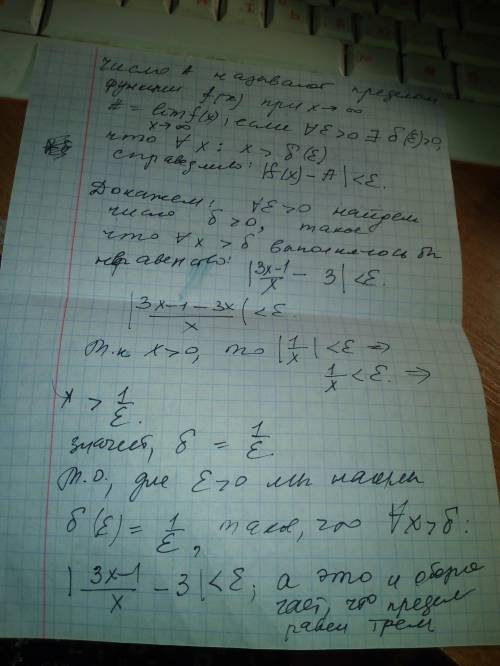 число A называют пределом
функции f(x) при x→∞
A = lim f(x), если ∀ε>0 ∃ δ(ε)>0,
x→∞
что ∀x: x > δ(ε)
справедливо: |f(x) - A| < ε.
Докажем: ∀ε>0 найдем
число δ>0, такое
что ∀x > δ выполнялось бы
неравенство: |3x-1/x - 3| < ε.
|3x-1-3x/x| < ε.
т.к x>0, то |1/x| < ε ⇒
1/x < ε. ⇒
x > 1/ε.
значит, δ = 1/ε.
т.о., для ε>0 мы нашли
δ(ε) = 1/ε, такое, что ∀x>δ:
|3x-1/x - 3| < ε, а это и обозна
чает, что предел
равен трем